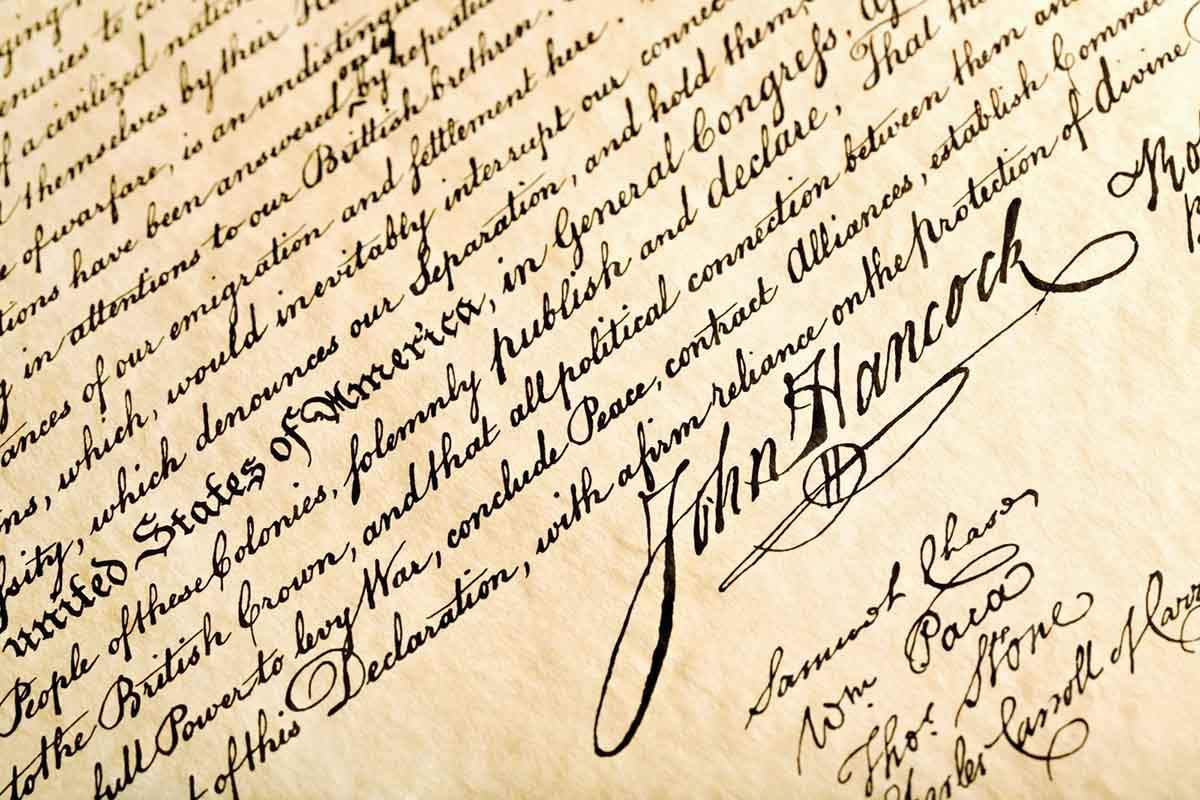 enaries to
of a civilized nation
themselves by their
of warfare, is an undistingu
only
tions have been answered by repeated
in attentions to our Brittish brethren.
ances of our emigration and settlement here.
ns, which, would inevitably interrupt our connec
ssity, which denounces our Separation, and hold them,
united States of America, in General Congress,
People of these Colonies, solemnly publish and declare, That
to the British Crown, and that all political connection between them an
full Power to levy War, conclude Peace, contract Alliances, establish Comme
of this Declaration, with a firm reliance on the protection of divine
John Hancock
Samuel Chase
Wm Paca
Thos. Stone
Charles Carroll of Carr